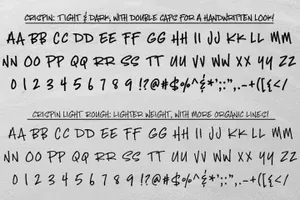 CRISPIN: TIGHT & DARK, WITH DOUBLE CAPS FOR A HANDWRITTEN LOOK!
AA BB CC DD EE FF GG HH II JJ KK LL MM
NN OO PP QQ RR SS TT UU VV WW XX YY ZZ
0 1 2 3 4 5 6 7 8 9 !?@#$%^&*';:",.-+([{</
CRISPIN LIGHT ROUGH: LIGHTER WEIGHT, WITH MORE ORGANIC LINES!
AA BB CC DD EE FF GG HH II JJ KK LL MM
NN OO PP QQ RR SS TT UU VV WW XX YY ZZ
0 1 2 3 4 5 6 7 8 9 !?@#$%^&*';:",.-+([{</